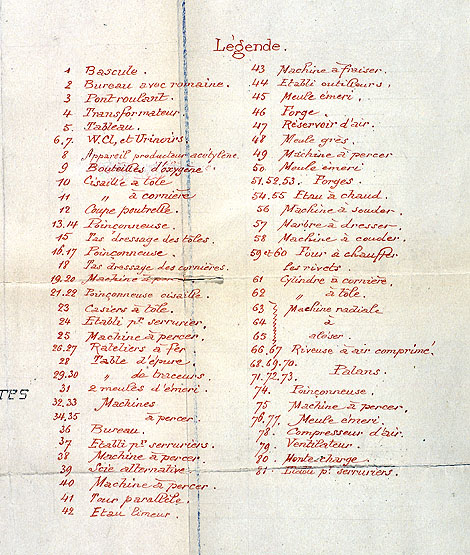 Légende.
1 Bascule.
2 Bureau avec romaine.
3 Pont roulant.
4 Transformateur
5. Tableau.
6,7. W.C., et Urinoirs.
8 Appareil producteur acétylène.
9 Bouteilles d'oxygène
10 Cisaille à tôle
11 〃 à cornière
12 Coupe poutrelle.
13.14 Poinçonneuse.
15 Tas dressage des tôles.
16,17 Poinçonneuse.
18 Tas dressage des cornières.
19.20 Machine à
21.22 Poinçonneuse cisaille.
23 Casiers à tôle.
24 Etabli pr. serrurier.
25 Machine à percer.
26-27 Rateliers à fer
28 Table d'épure.
29.30 〃 de traceurs
31 2 meules d'émeri.
32,33 Machines
34,35 à percer
36 Bureau.
37 Etabli pr. serruriers.
38 Machine à percer.
39 Scie alternative
40 Machine à percer.
41 Tour parallèle.
42 Etau limeur.
43 Machine à fraiser.
44 Etabli outilleurs,
45 Meule émeri,
46 Forge.
47 Réservoir d'air.
48 Meule grès.
49 Machine à percer
50 Meule émeri
51.52.53. Forges.
54.55 Etau à chaud.
56 Machine à souder.
57 Marbre à dresser.
58 Machine à couder.
59 et 60 Four à chauffer
les rivets.
61 Cylindre à cornière.
62 〃 à tôle.
63 Machine radiale
64 à
65 aléser
66,67 Riveuse à air comprimé.
68.69.70.
71.72.73. Palans.
74. Poinçonneuse.
75 Machine à percer.
76,77. Meule émeri.
78. Compresseur d'air.
79. Ventilateur.
80 Monte-charge.
81 pr. serruriers.
TES